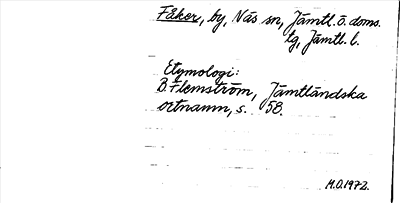 Fåker, by, Näs sn, Jämtl. ö. doms.
lg, Jämtl. l.
Etymologi:
B. Flemström, Jämtländska
ortnamn, s. 58.
M.O. 1972.